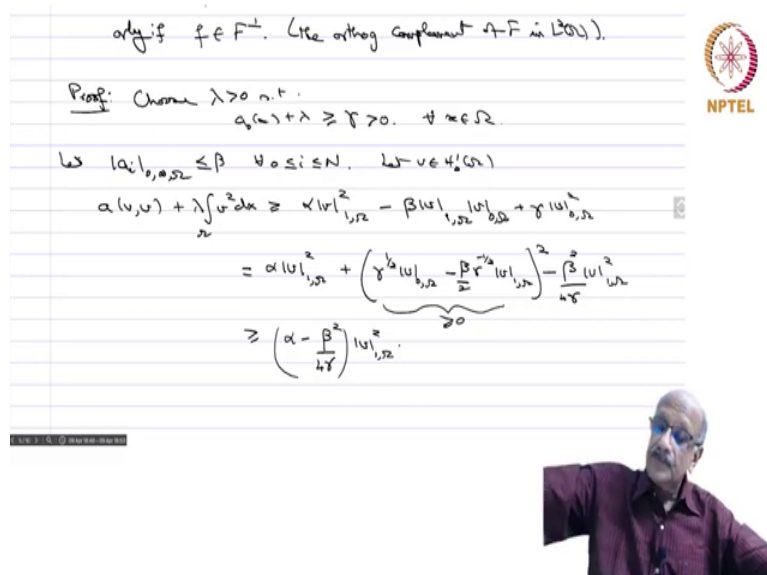 only if f ∈ F^⊥. (the orthog complement of F in L²(Ω)).
NPTEL
Proof: Choose λ>0 s.t.
a₀(x) + λ ≥ γ > 0. ∀ x ∈ Ω.
Let |aᵢ|₀,∞,Ω ≤ β ∀ 0 ≤ i ≤ N. Let v ∈ H₀¹(Ω)
a(v,v) + λ∫_Ω v² dx ≥ α|v|²₁,Ω − β|v|₁,Ω |v|₀,Ω + γ|v|²₀,Ω
= α|v|²₁,Ω + (γ^{1/2}|v|₀,Ω − β/2 γ^{-1/2}|v|₁,Ω)² − β²/4γ |v|²₁,Ω
≥0
≥ (α − β²/4γ)|v|²₁,Ω.